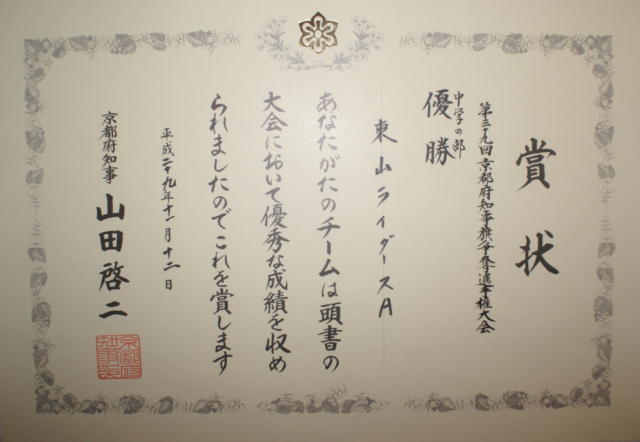 賞状
第三十九回京都府知事旗争奪選手権大会
中学の部
優勝
東山ライダースA
あなたがたのチームは頭書の
大会において優秀な成績を収め
られましたのでこれを賞します
平成二十九年十一月十二日
京都府知事
山田啓二
京都府
知事之印